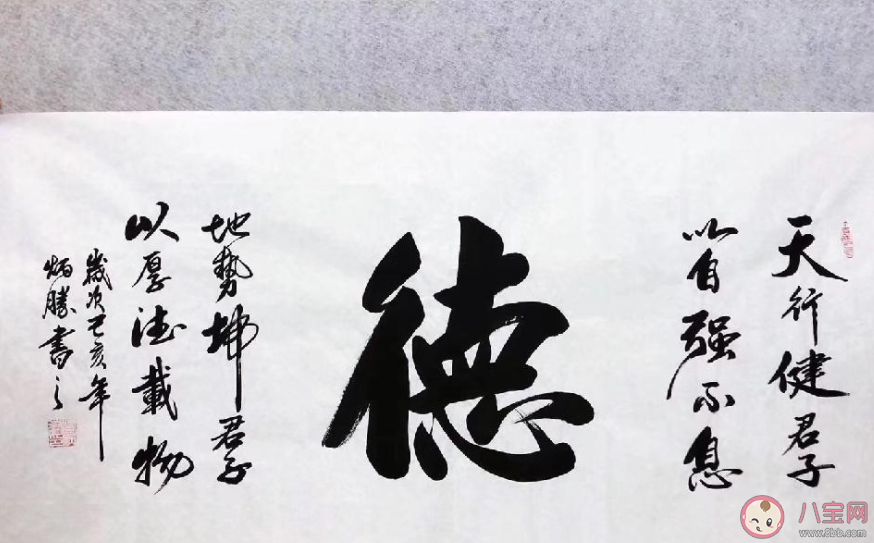 天行健君子
以自强不息
德
地势坤君子
以厚德载物
岁次己亥年
炳胜书之
八宝网
www.8bb.com